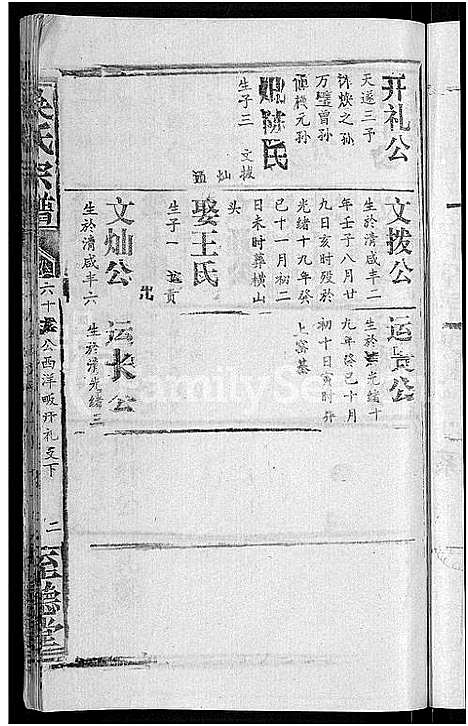 开礼公
天遂三子
洪焕之孙
万璧曾孙
元孙
氏
生子三 文拨
灿
文拨公
生於清咸丰二
年壬子八月廿
九日亥时殁於
光绪十九年癸
已十一月初二
日未时葬横山
头
娶王氏
生子一 运贡
文灿公
生於清咸丰六
运贡公
生於清光绪十
九年癸已十月
初十日寅时
上寄基
运长公
生於清光绪三
吴氏宗谱
六十
公西洋畈开礼支下
二
至德堂